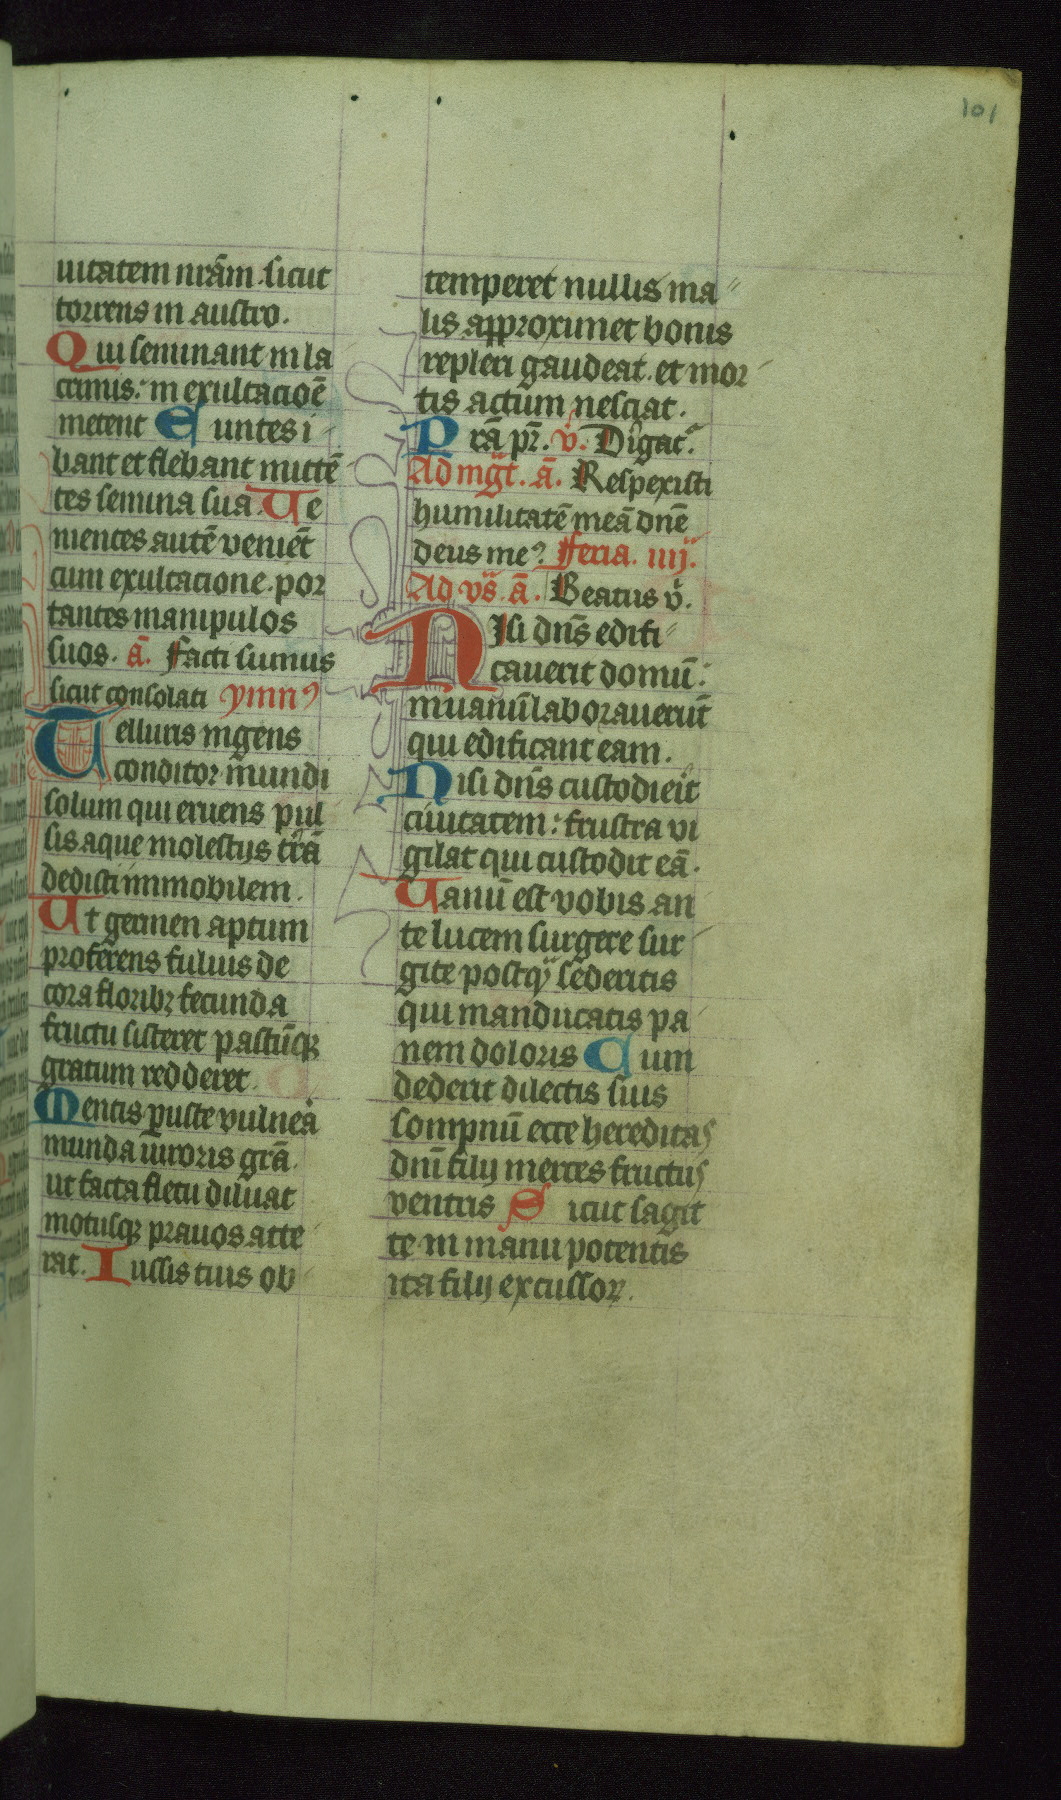 101
uitatem nrām sicut
torrens in austro.
Qui seminant in la
crimis: in exultacioē
metent Euntes i
bant et flebant mittē
tes semina sua. Ue
nientes autē venięt
cum exultacione por
tantes manipulos
suos. ā. Facti sumus
sicut consolati ymnꝰ
Telluris ingens
conditor mundi
solum qui eruens pul
sis aque molestijs trā
dedisti immobilem.
Ut germen aptum
proferens fuluis de
cora floribꝫ fecunda
fructu sisteret pastūqꝫ
gratum redderet.
Mentis puste vulnea
munda uiroris grā.
ut facta fletu diluat
motusqꝫ prauos atte
rat. Iussis tuis ob
temperet nullis ma
lis approximet bonis
repleri gaudeat. et mor
tis actum nesciat.
P rā pr̄. v̇. Dirigat.
Ad mgt̄. ā. Respexisti
humilitatē meā dnē
deus me? Feria. iiij.
Ad vs̄. ā. Beatus v̇.
Nisi dn̄s edifi
cauerit domū:
in uanū laborauerūt
qui edificant eam.
Nisi dn̄s custodierit
ciuitatem: frustra vi
gilat qui custodit eā.
Uanū est vobis an
te lucem surgere sur
gite postqᷓ sederitis
qui manducatis pa
nem doloris Cum
dederit dilectis suis
sompnū ecce hereditas
dnī filij merces fructus
ventris Sicut sagit
te in manu potentis
ita filij excussoꝝ.